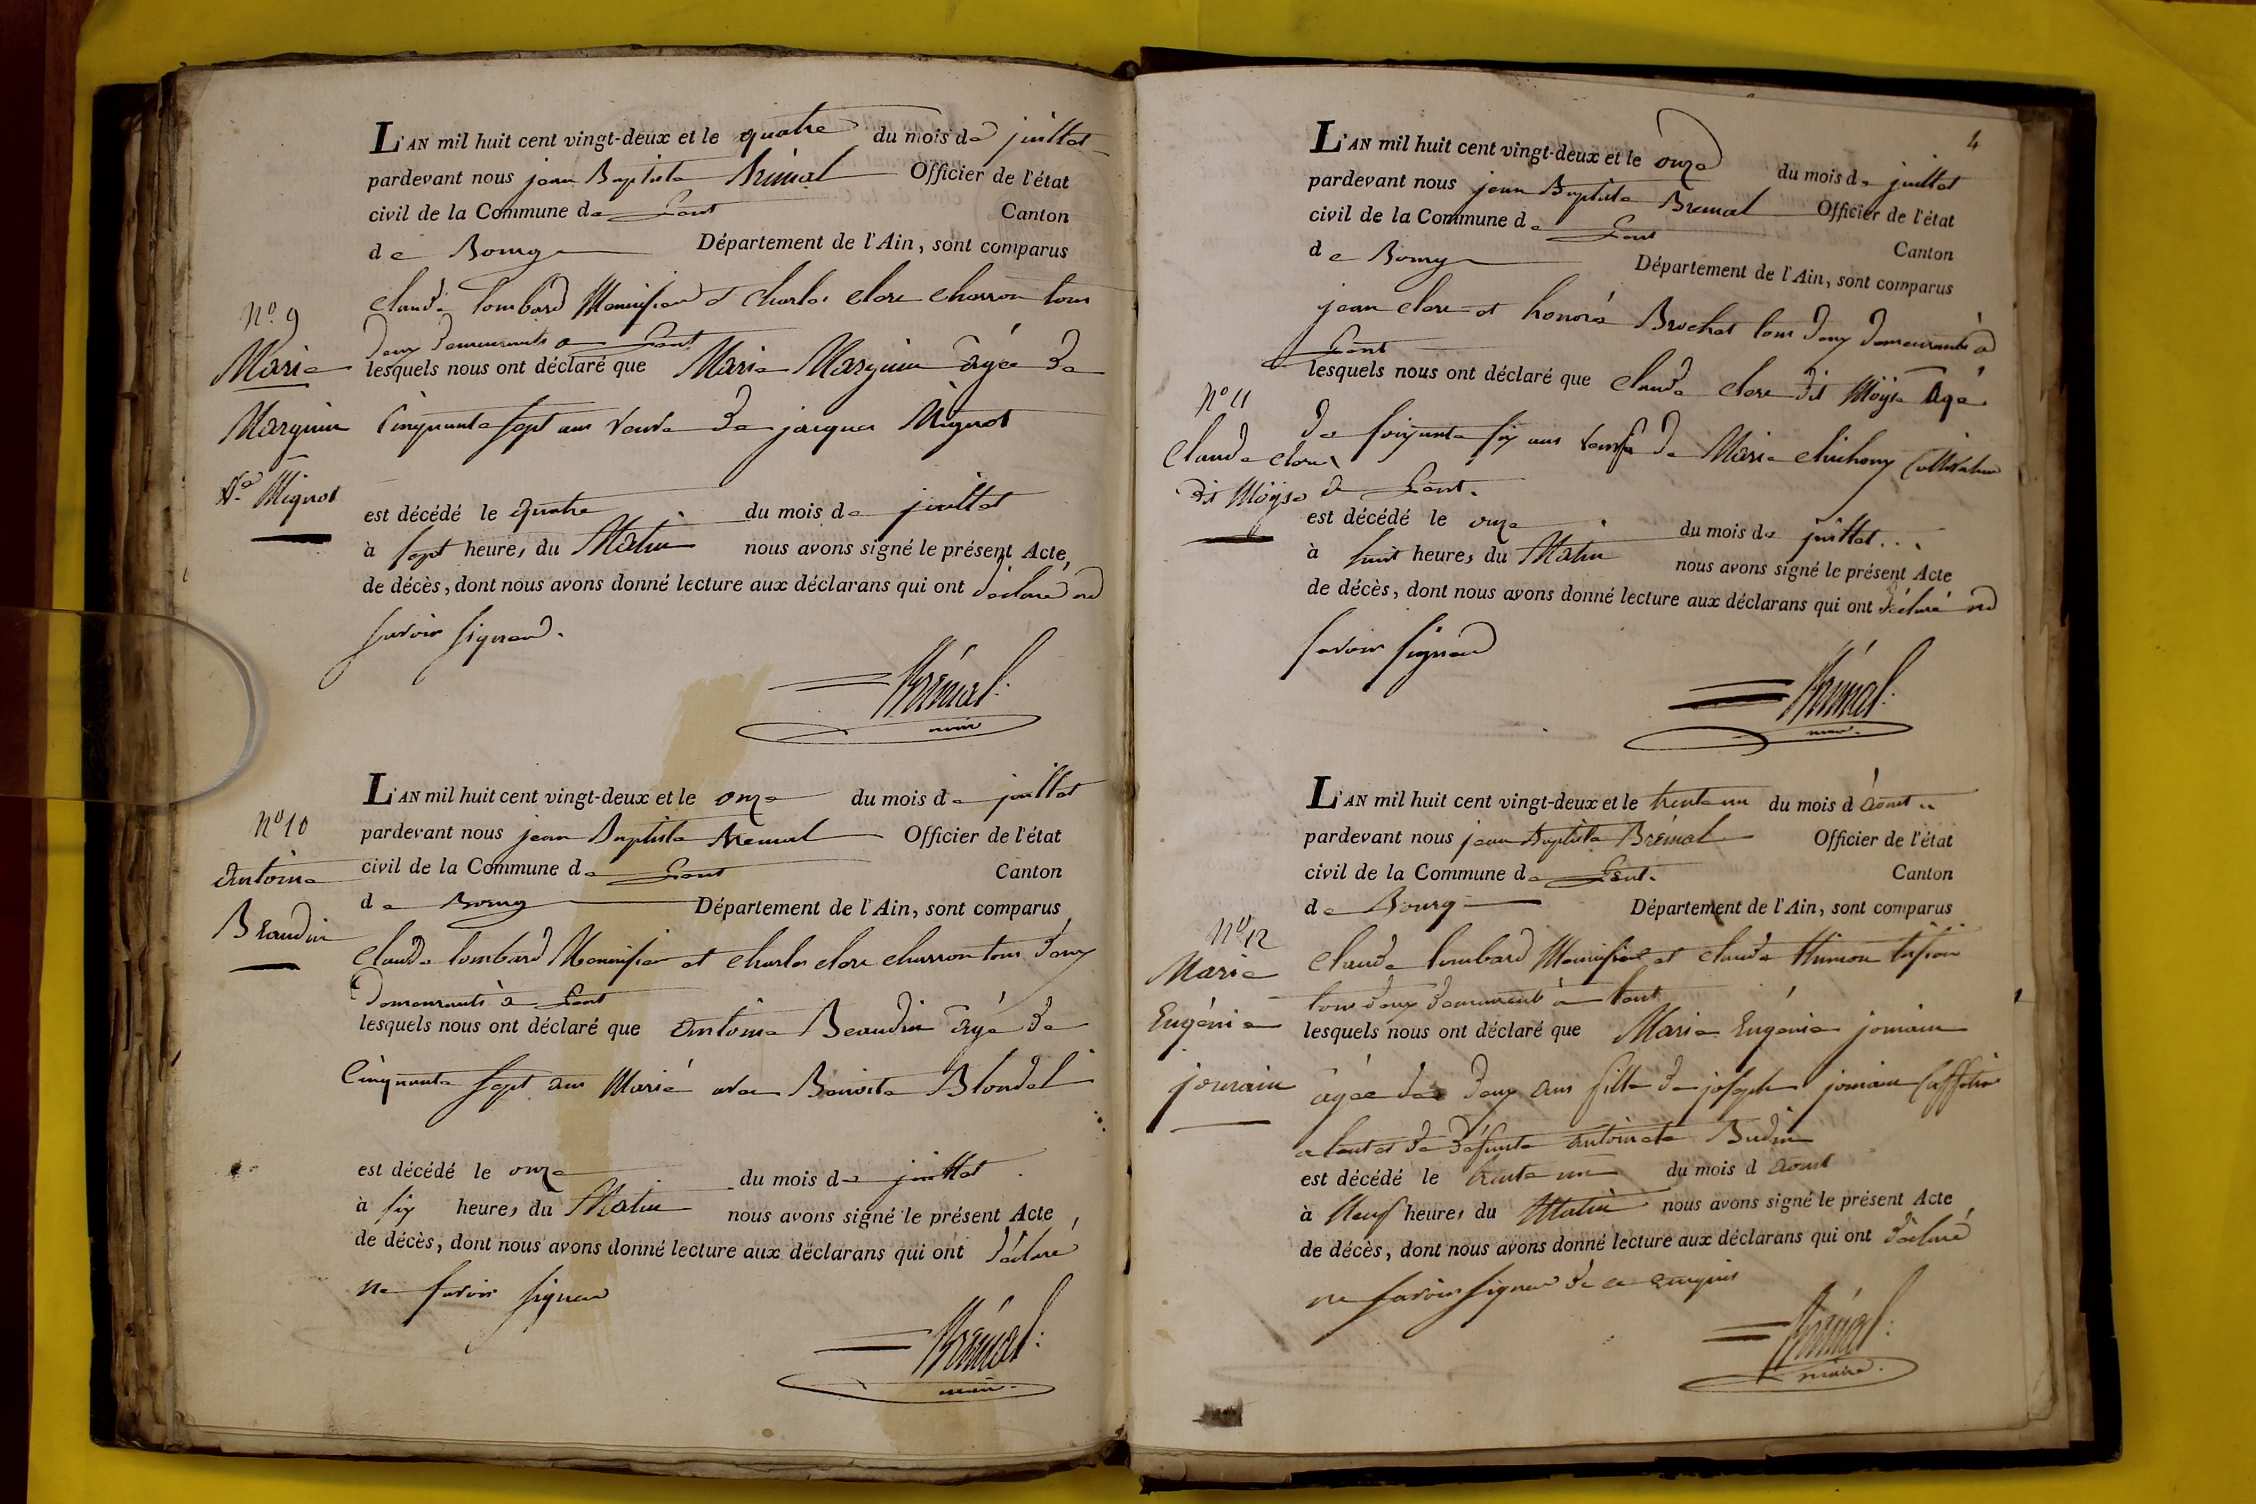 L'AN mil huit cent vingt-deux et le quatre du mois de juillet
pardevant nous jean Baptiste Brémal Officier de l'état
civil de la Commune de Lent Canton
de Bourg Département de l'Ain, sont comparus
Claude lombard Menuisier et Charles clere charron tous
deux demeurants a Lent
lesquels nous ont déclaré que Marie Marguin âgée de
Cinquante sept ans veuve de jacques Mignot
est décédé le quatre du mois de juillet
à sept heures du Matin nous avons signé le présent Acte,
de décès, dont nous avons donné lecture aux déclarans qui ont déclaré ne
savoir signer.
Brémal
maire
N.º 9
Marie
Marguin
V.e Mignot
L'AN mil huit cent vingt-deux et le onze du mois de juillet
pardevant nous jean Baptiste Bremal Officier de l'état
civil de la Commune de Lent Canton
de Bourg Département de l'Ain, sont comparus
Claude lombard Menuisier et charles clere charron tous deux
demeurants à Lent
lesquels nous ont déclaré que antoine Beaudin âgé de
Cinquante sept ans Marié avec Benoite Blondel
est décédé le onze du mois de juillet
à six heures du Matin nous avons signé le présent Acte
de décès, dont nous avons donné lecture aux déclarans qui ont déclaré
ne savoir signer
Brémal
maire
Nº 10
antoine
Beaudin
4
L'AN mil huit cent vingt-deux et le onze du mois de juillet
pardevant nous jean Baptiste Bremal Officier de l'état
civil de la Commune de Lent Canton
de Bourg Département de l'Ain, sont comparus
jean clere et honoré Brochet tous deux demeurants à
Lent
lesquels nous ont déclaré que claude clere dit Moÿse Agé
de soixante six ans veuf de Marie chichoux Cultivateur
a Lent.
est décédé le onze du mois de juillet
à huit heures du Matin nous avons signé le présent Acte
de décès, dont nous avons donné lecture aux déclarans qui ont déclaré ne
savoir signer
Brémal
maire
Nº 11
Claude clere
dit Moÿse
L'AN mil huit cent vingt-deux et le trente un du mois d'Aoust
pardevant nous jean Baptiste Brémal Officier de l'état
civil de la Commune de Lent. Canton
de Bourg Département de l'Ain, sont comparus
Claude lombard Menuisier et claude
tous deux demeurent à lent
lesquels nous ont déclaré que Marie Eugénie jomain
âgée de deux ans fille de joseph jomain Caffetier
a lent et de défunte antoinete Budin
est décédé le trente un du mois d Aoust
à Neuf heures du Matin nous avons signé le présent Acte
de décès, dont nous avons donné lecture aux déclarans qui ont déclaré
ne savoir signer de ce enquis
Brémal
maire.
Nº 12
Marie
Eugénie
jomain